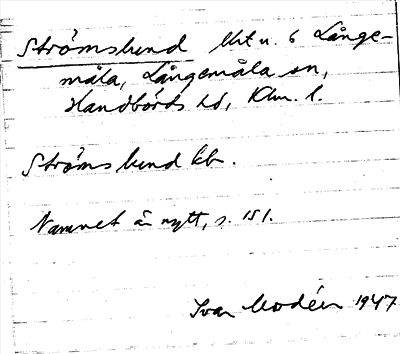 Strömslund Utt u. 6 Långe-
måla, Långemåla sn,
Handbörds hd, Klm. l.
Strömslund kb.
Namnet är nytt, s. 151.
Ivar Modéer 1947